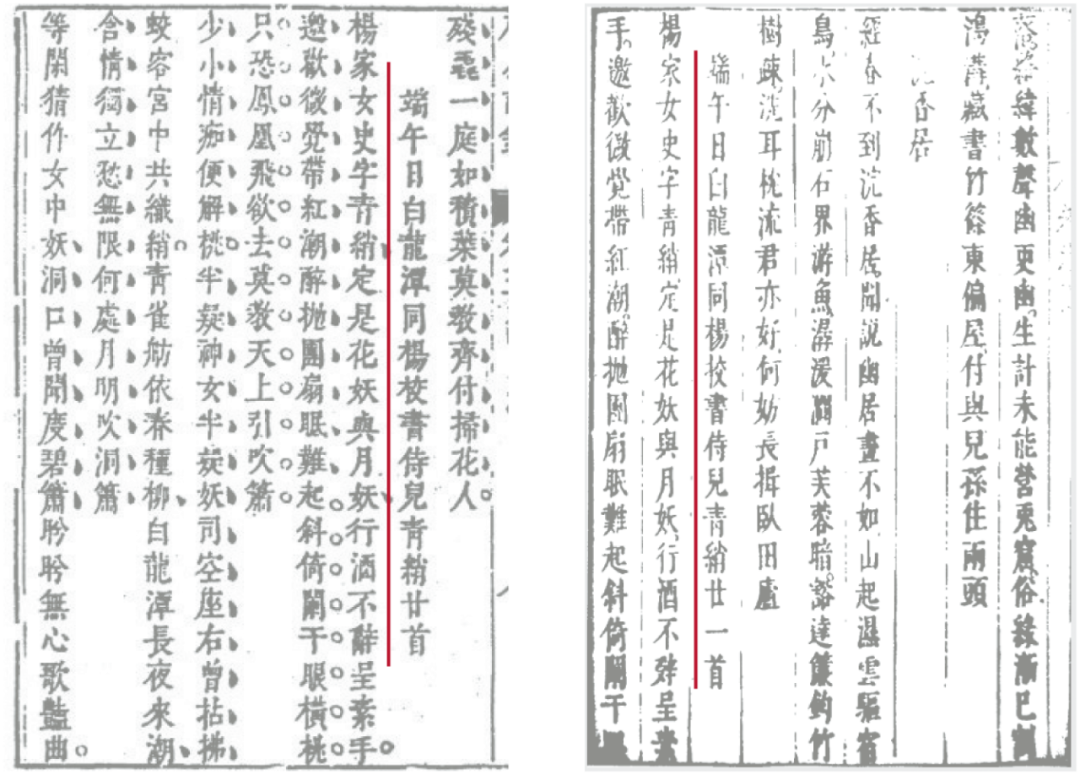 殘一庭如積葉莫教齊付掃花人。
端午日白龍潭同楊校書侍兒青綃廿首
楊家女史字青綃定是花妖與月妖行酒不辭呈素手。
邀歡微覺帶紅潮醉抛團扇眠難起斜倚闌干眼橫桃
只恐鳳凰飛欲去莫教天上引吹簫
少小情痴便解桃半疑神女半疑妖司空座右曾拈拂
蛟客宮中共織綃。青雀舫依春種柳白龍潭長夜來潮
含情獨立愁無限何處月明吹洞簫
等閒猜作女中妖洞口曾聞度碧簫肹肹無心歌豔曲。
緯數聲幽更幽。生計未能營兎窟。俗緣漸已
鴻溝藏書竹篠東偏屋付與兒孫住兩頭
浣香居
經春不到浣香居聞說幽居畫不如山起濕雲驅宿
鳥水分崩石界游魚潺湲澗戶芙蓉暗。豁達簾鉤竹
樹疎洗耳枕流君亦好何妨長揖臥田廬
端午日白龍潭同楊挍書侍兒青綃廿一首
楊家女史字青綃定是花妖與月妖。行酒不辤呈素
手。邀歡微覺帶紅潮。醉抛團扇眠難起斜倚闌干眼